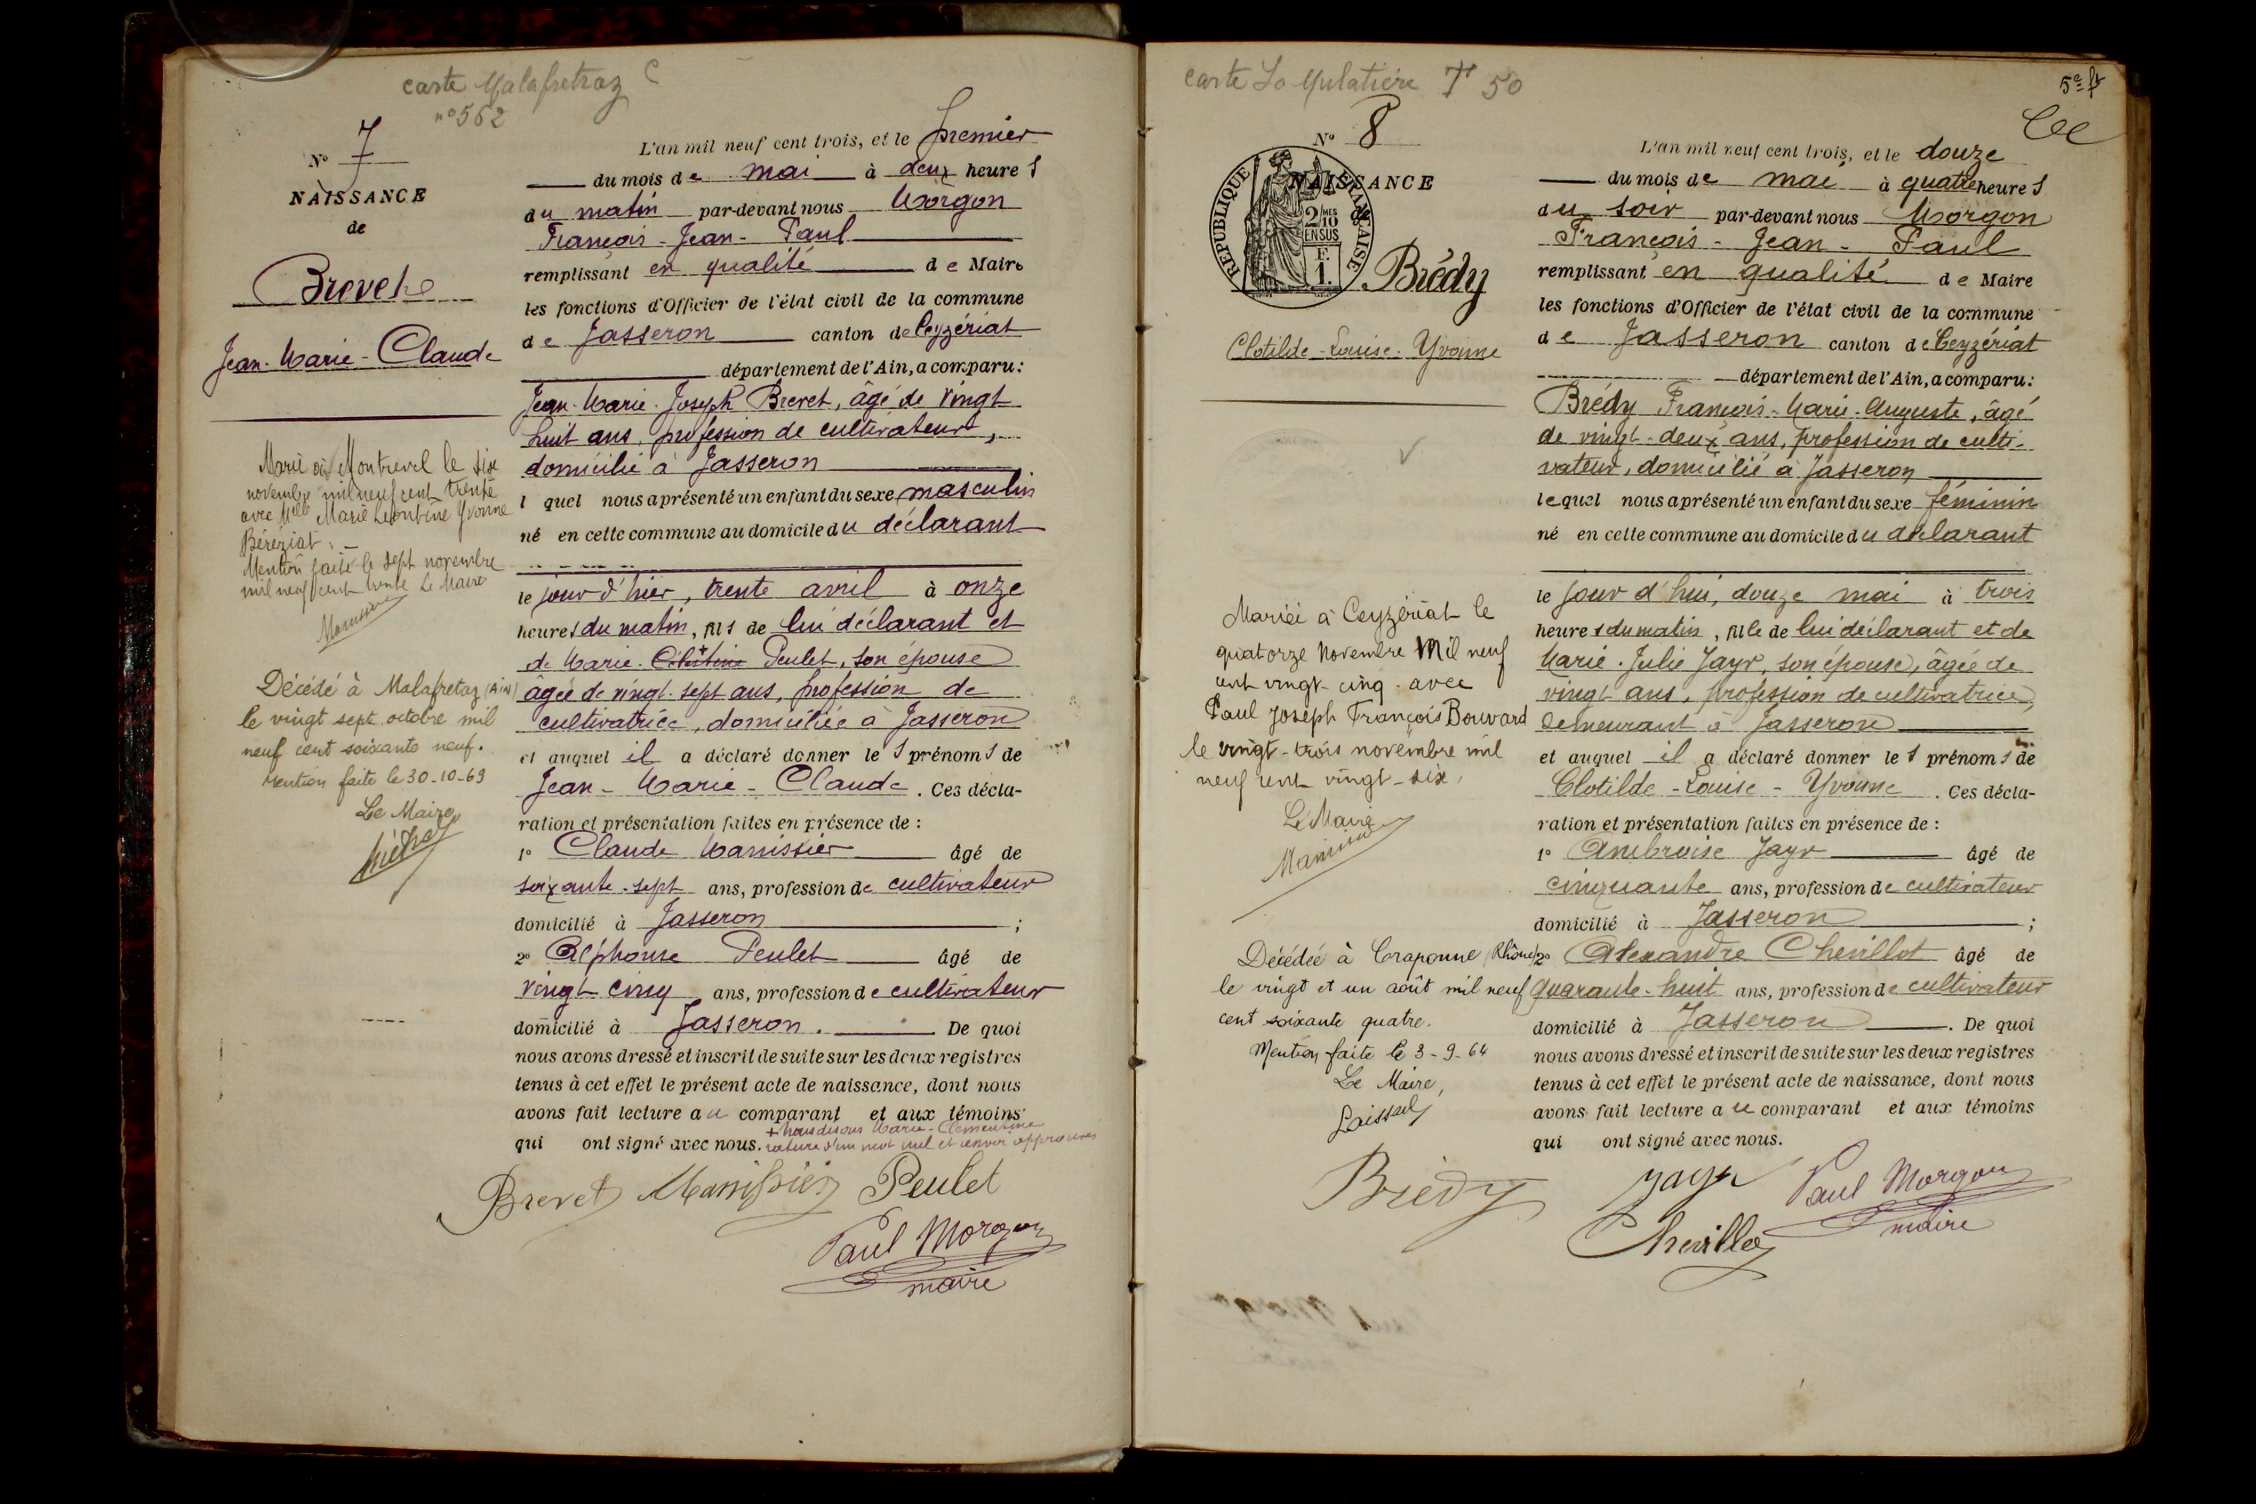 carte Malafretaz C
n° 562
N° 7
NAISSANCE
de
Brevet
Jean-Marie-Claude
Marié à Montrevel le six
novembre mil neuf cent trente
avec Mlle Marie Léontine Yvonne
Béréziat. —
Mention faite le sept novembre
mil neuf cent trente Le Maire
Décédé à Malafretaz (Ain)
le vingt sept octobre mil
neuf cent soixante neuf.
Mention faite le 30-10-69
Le Maire
L'an mil neuf cent trois, et le premier
du mois de mai à deux heures
du matin par-devant nous Morgon
François-Jean-Paul
remplissant en qualité de Maire
les fonctions d'Officier de l'état civil de la commune
de Jasseron canton de Ceyzériat
département de l'Ain, a comparu:
Jean-Marie-Joseph Brevet, âgé de vingt
huit ans, profession de cultivateur,
domicilié à Jasseron
l quel nous a présenté un enfant du sexe masculin
né en cette commune au domicile du déclarant
le jour d'hier, trente avril à onze
heures du matin, fils de lui déclarant et
de Marie-Célestine + Peulet, son épouse
âgée de vingt-sept ans, profession de
cultivatrice, domiciliée à Jasseron
et auquel il a déclaré donner les prénoms de
Jean-Marie-Claude. Ces décla-
ration et présentation faites en présence de :
1° Claude Manissier âgé de
soixante-sept ans, profession de cultivateur
domicilié à Jasseron ;
2° Alphonse Peulet âgé de
vingt cinq ans, profession de cultivateur
domicilié à Jasseron. De quoi
nous avons dressé et inscrit de suite sur les deux registres
tenus à cet effet le présent acte de naissance, dont nous
avons fait lecture au comparant et aux témoins
qui ont signé avec nous. + Nous disons Marie-Clémentine
rature d'un mot nul et renvoi approuvés
Brevet Manissier Peulet
Paul Morgon
maire
carte La Mulatière T 50
5e f
N° 8
NAISSANCE
de
REPUBLIQUE FRANÇAISE
2/10 MES
EN SUS
F.
1.
Brédy
Clotilde-Louise-Yvonne
Mariée à Ceyzériat le
quatorze Novembre Mil neuf
cent vingt-cinq avec
Paul Joseph François Bouvard
le vingt-trois novembre mil
neuf cent vingt-six,
Le Maire
Décédée à Craponne (Rhône)
le vingt et un août mil neuf
cent soixante quatre.
Mention faite le 3-9-64
Le Maire,
L'an mil neuf cent trois, et le douze
du mois de mai à quatre heures
du soir par-devant nous Morgon
François-Jean-Paul
remplissant en qualité de Maire
les fonctions d'Officier de l'état civil de la commune
de Jasseron canton de Ceyzériat
département de l'Ain, a comparu:
Brédy François-Marie-Auguste, âgé
de vingt-deux ans, profession de culti-
vateur, domicilié à Jasseron
lequel nous a présenté un enfant du sexe féminin
né en cette commune au domicile du déclarant
le jour d'hui, douze mai à trois
heures du matin, fille de lui déclarant et de
Marie-Julie Jayr, son épouse, âgée de
vingt ans, profession de cultivatrice
demeurant à Jasseron
et auquel il a déclaré donner les prénoms de
Clotilde-Louise-Yvonne. Ces décla-
ration et présentation faites en présence de :
1° Ambroise Jayr âgé de
cinquante ans, profession de cultivateur
domicilié à Jasseron ;
2° Alexandre Chevillot âgé de
quarante-huit ans, profession de cultivateur
domicilié à Jasseron. De quoi
nous avons dressé et inscrit de suite sur les deux registres
tenus à cet effet le présent acte de naissance, dont nous
avons fait lecture au comparant et aux témoins
qui ont signé avec nous.
Brédy Jayr Paul Morgon
maire
Chevillot